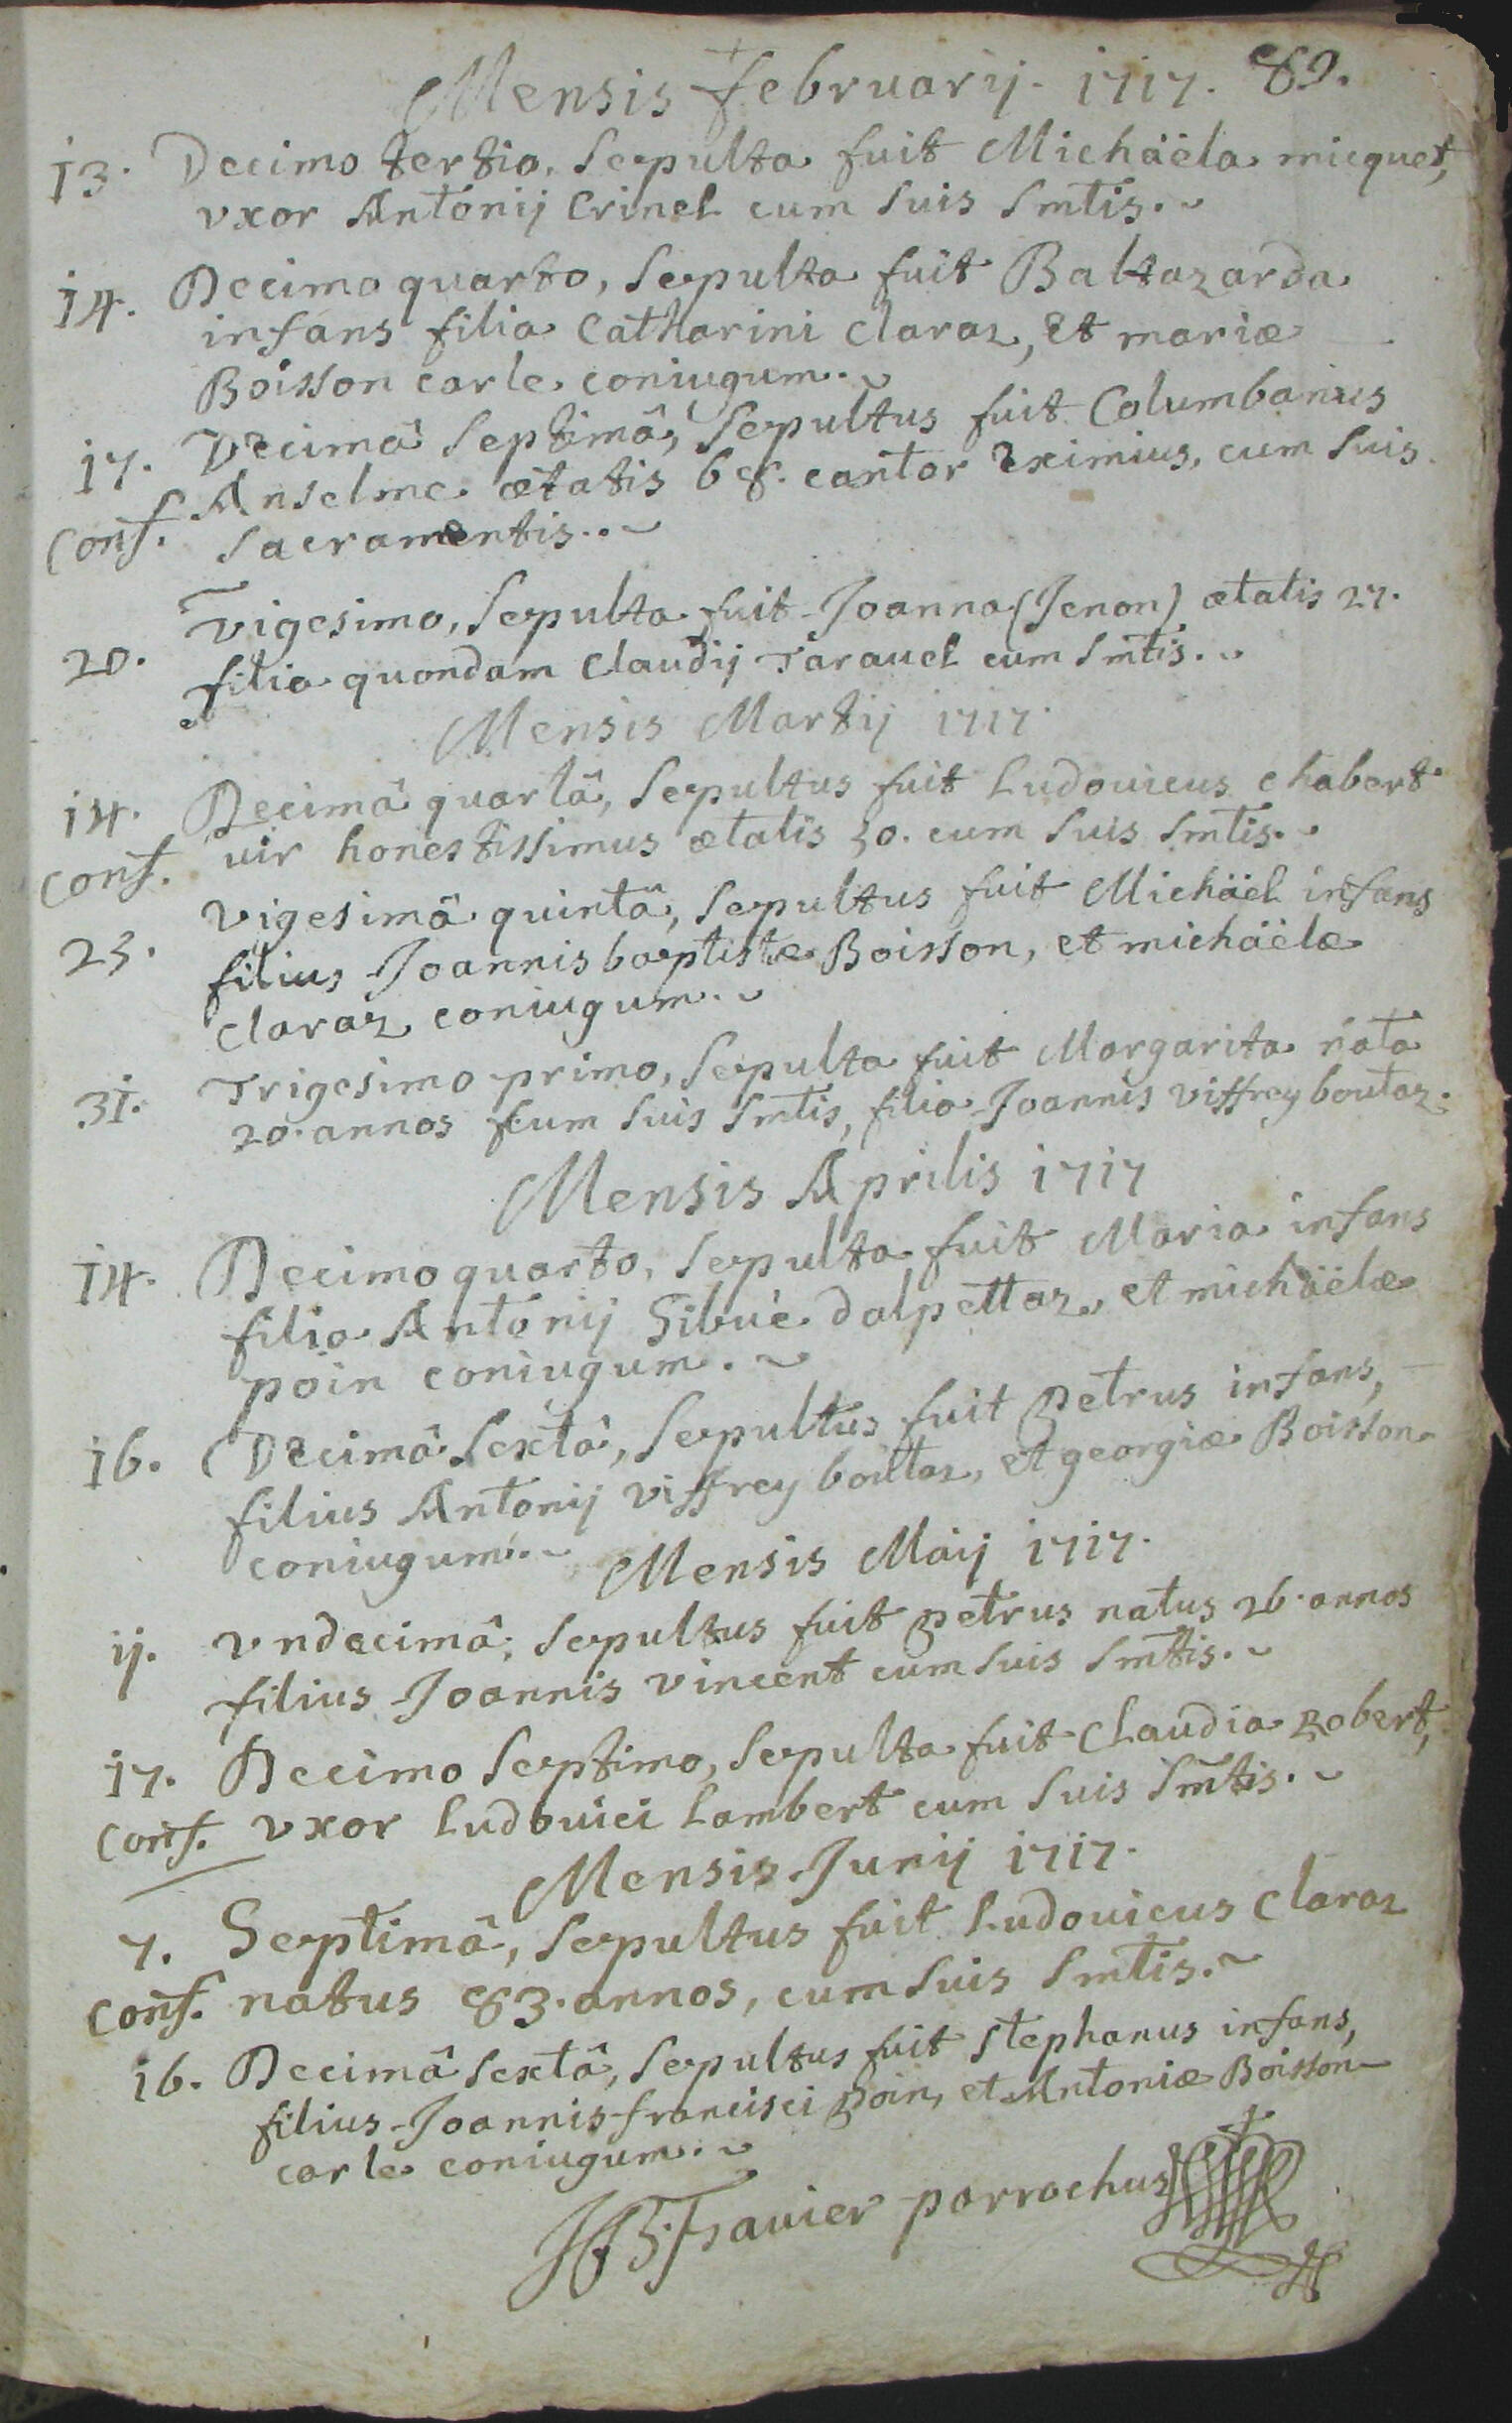 Mensis februarij. 1717. 89.
13. Decimo tertio, sepulta fuit Michäela micquet,
vxor Antonij Crinel cum suis smtis.
14. Decimo quarto, sepulta fuit Baltazarda
infans filia Catharini Claraz, et mariæ
Boisson carle coniugum.
17. Decimâ septimâ, sepultus fuit Columbanus
Anselme ætatis 68. cantor eximius, cum suis
conf. sacramentis..
20. vigesimo, sepulta fuit Joanna (Jenon) ætatis 27.
filia quondam Claudij Tarauel cum smtis..
Mensis Martij 1717.
14. Decimâ quartâ, sepultus fuit Ludouicus chabert
conf. uir honestissimus ætatis 50. cum suis smtis.
25. vigesimâ quintâ, sepultus fuit Michäel infans
filius Joannis baptistæ Boisson, et michäelæ
Claraz coniugum.
31. Trigesimo primo, sepulta fuit Margarita nata
20. annos cum suis smtis, filia Joannis viffrey boutaz.
Mensis Aprilis 1717
14. Decimo quarto, sepulta fuit Maria infans
filia Antonij Sibué dalpettaz, et michäelæ
poin coniugum.
16. Decimâ sextâ, sepultus fuit petrus infans,
filius Antonij viffrey boutaz, et georgiæ Boisson
coniugum. Mensis Maij 1717.
ij. vndecimâ, sepultus fuit petrus natus 26. annos
filius Joannis vincent cum suis smtis.
17. Decimo septimo, sepulta fuit Claudia Robert,
conf. vxor Ludouici Lambert cum suis smtis.
Mensis Junij 1717.
7. Septimâ, sepultus fuit Ludouicus Claraz
conf. natus 83. annos, cum suis smtis.
16. Decimâ sextâ, sepultus fuit stephanus infans,
filius Joannis francisci poin, et Antoniæ Boisson
carle coniugum.
parrochus